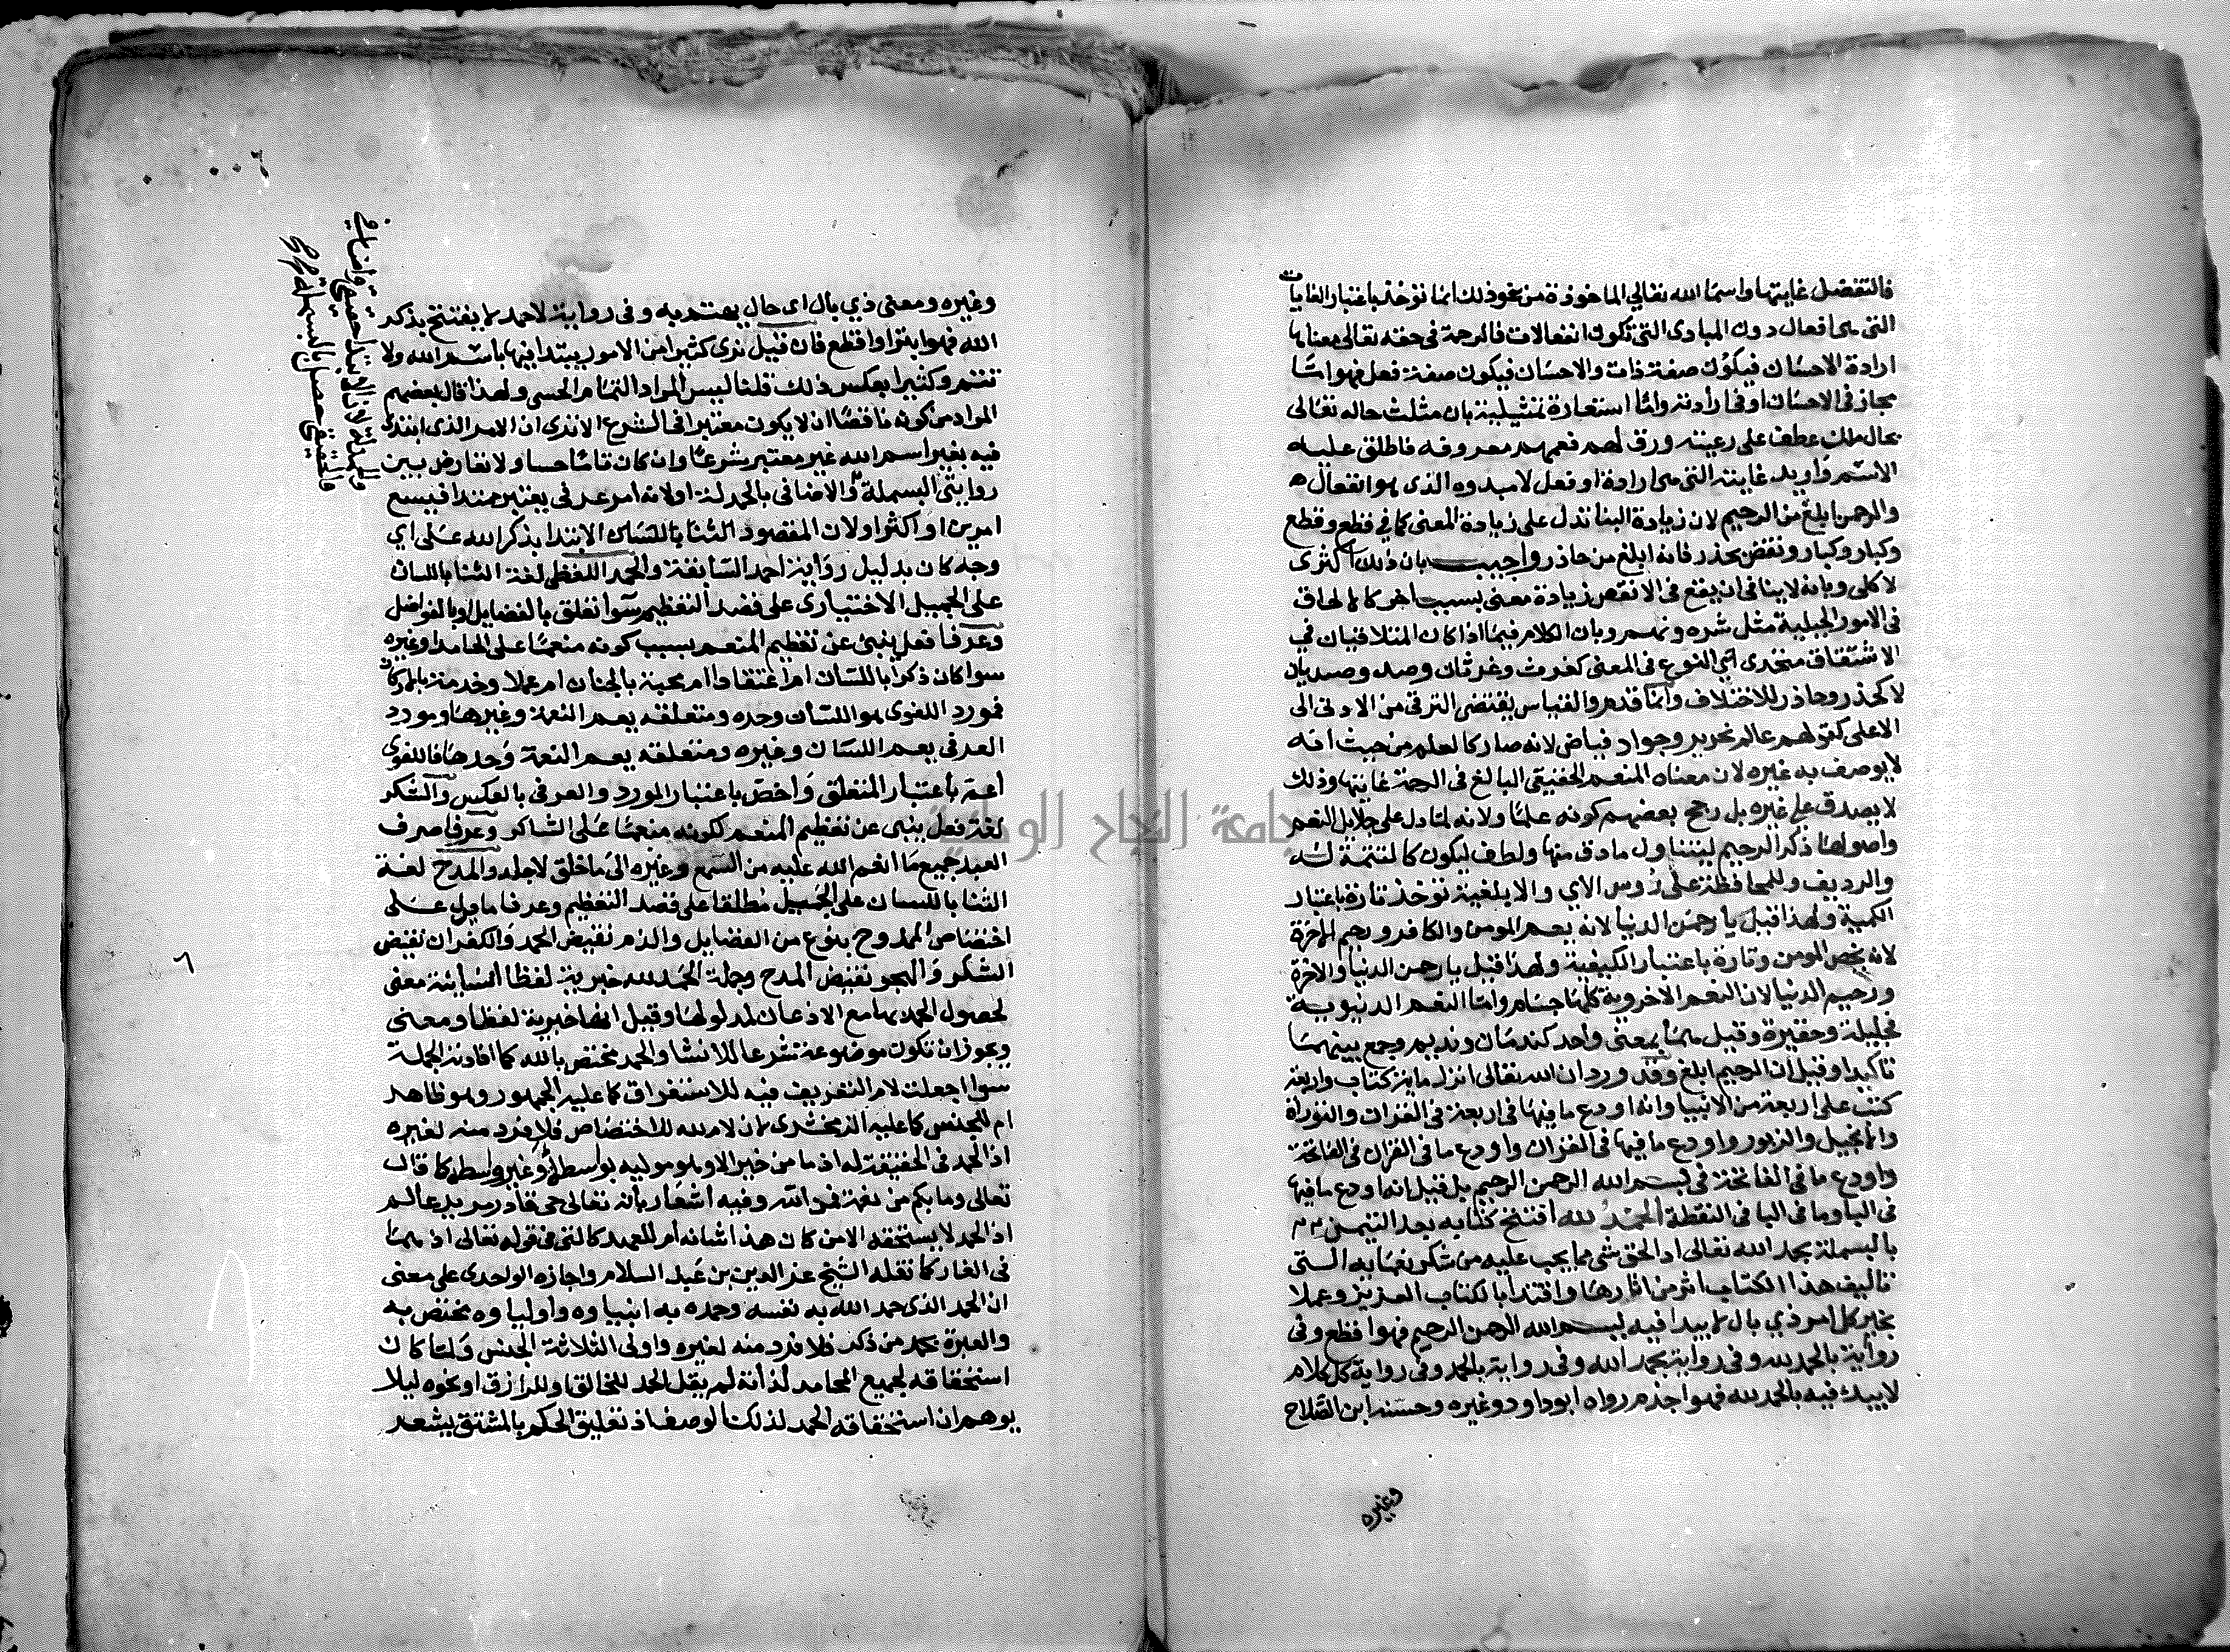 فالتفضل غايتها واسما الله تعالي الماخوذة من نحو ذلك انما توخذ باعتبار الغايات
التي هي افعال دون المبادى التي تكون انفعالات فالرحمة في حقه تعالى معناها
ارادة الاحسان فيكون صفة ذات والاحسان فيكون صفة فعل فهو اما
مجاز في الاحسان او في ارادته واما استعارة تمثيلية بان مثلت حاله تعالى
بحال ملك عطف على رعيته ورق لهم فعمهم معروفه فاطلق عليه
الاسم واريد غايته التي هي ارادة او فعل لا مبدوه الذي هو انفعال
والرحمن ابلغ من الرحيم لان زيادة البنا تدل على زيادة المعنى كما في قطع وقطع
وكبار وكبار ونقض بحذر فانه ابلغ من حاذر واجيب بان ذلك اكثرى
لا كلى وبانه لا ينافى ان يقع في الانقص زيادة معنى بسبب اخر كالالحاق
في الامور الجبلية مثل شره ونهم وبان الكلام فيما اذا كان المتلاقيان في
الاشتقاق متحدى النوع في المعنى كغرث وغرثان وصد وصديان
لا كحذر وحاذر للاختلاف وانما قدم والقياس يقتضى الترقي من الادنى الى
الاعلى كقولهم عالم نحرير وجواد فياض لانه صار كالعلم من حيث انه
لا يوصف به غيره لان معناه المنعم الحقيقي البالغ في الرحمة غايتها وذلك
لا يصدق على غيره بل رجح بعضهم كونه علما ولانه لما دل على جلايل النعم
واصولها ذكر الرحيم ليتناول ما دق منها ولطف ليكون كالتتمة له
والرديف وللمحافظة على روس الاي والابلغية توخذ تارة باعتبار
الكمية ولهذا قيل يا رحمن الدنيا لانه يعم المومن والكافر ورحيم الاخرة
لانه يخص المومن وتارة باعتبار الكيفية ولهذا قيل يا رحمن الدنيا والاخرة
ورحيم الدنيا لان النعم الاخروية كلها جسام واما النعم الدنيوية
فجليلة وحقيرة وقيل هما بمعنى واحد كندمان ونديم وجمع بينهما
تاكيدا وقيل ان الرحيم ابلغ وقد ورد ان الله تعالى انزل ماية كتاب واربعة
كتب على اربعة من الانبيا وانه اودع ما فيها في اربعة في القران والتوراة
والانجيل والزبور واودع ما فيها في القران واودع ما في القران في الفاتحة
واودع ما في الفاتحة في بسم الله الرحمن الرحيم بل قيل انه اودع ما فيها
في البا وما في البا في النقطة الحمد لله افتتح كتابه بعد التيمن
بالبسملة بحمد الله تعالى ادا لحق شي مما يجب عليه من شكر نعمايه التي
تاليف هذا الكتاب اثر من اثارها واقتدا بالكتاب العزيز وعملا
بخبر كل امر ذي بال لا يبدا فيه ببسم الله الرحمن الرحيم فهو اقطع وفي
رواية بالحمد لله وفي رواية بحمد الله وفي رواية بالحمد وفي رواية كل كلام
لا يبدا فيه بالحمد لله فهو اجذم رواه ابو داود وغيره وحسنه ابن الصلاح
وغيره
وغيره ومعنى ذي بال اى حال يهتم به وفي رواية لاحمد لا يفتتح بذكر
الله فهو ابتر او اقطع فان قيل نرى كثيرا من الامور يبتدا فيها باسم الله ولا
تتم وكثيرا بعكس ذلك قلنا ليس المراد التمام الحسى ولهذا قال بعضهم
المراد من كونه ناقصا ان لا يكون معتبرا في الشرع الا ترى ان الامر الذي ابتدى
فيه بغير اسم الله غير معتبر شرعا وان كان تاما حسا ولا تعارض بين
روايتي البسملة والاضافى بالحمدلة او لانه امر عرفى يعتبر ممتدا فيسع
امرين او اكثر او لان المقصود الثنا باللسان الابتدا بذكر الله على اي
وجه كان بدليل رواية احمد السابقة والحمد اللفظي لغة الثنا باللسان
على الجميل الاختيارى على قصد التعظيم سوا تعلق بالفضايل او بالفواضل
وعرفا فعل ينبئ عن تعظيم المنعم بسبب كونه منعما على الحامد او غيره
سوا كان ذكرا باللسان ام اعتقادا ام محبة بالجنان ام عملا وخدمة بالاركان
فمورد اللغوى هو اللسان وحده ومتعلقه يعم النعمة وغيرها ومورد
العرفي يعم اللسان وغيره ومتعلقه يعم النعمة وحدها فاللغوي
اعم باعتبار المتعلق واخص باعتبار المورد والعرفي بالعكس والشكر
لغة فعل ينبى عن تعظيم المنعم لكونه منعما على الشاكر وعرفا صرف
العبد جميع ما انعم الله عليه من السمع وغيره الى ما خلق لاجله والمدح لغة
الثنا باللسان على الجميل مطلقا على قصد التعظيم وعرفا ما يدل على
اختصاص الممدوح بنوع من الفضايل والذم نقيض الحمد والكفران نقيض
الشكر والهجو نقيض المدح وجملة الحمد لله خبرية لفظا انشائية معنى
لحصول الحمد بها مع الاذعان لمدلولها وقيل انها خبرية لفظا ومعنى
ويجوز ان تكون موضوعة شرعا للانشا والحمد مختص بالله كما افادته الجملة
سوا اجعلت لام التعريف فيه للاستغراق كما عليه الجمهور وهو ظاهر
ام للجنس كما عليه الزمخشرى لان لام لله للاختصاص فلا فرد منه لغيره
اذ الحمد في الحقيقة له اذ ما من خير الا وهو موليه بواسطة وغير واسطة كما قال
تعالى وما بكم من نعمة فمن الله وفيه اشعار بانه تعالى حي قادر مريد عالم
اذ الحمد لا يستحقه الا من كان هذا شانه ام للعهد كالتي في قوله تعالى اذ هما
في الغار كما نقله الشيخ عز الدين بن عبد السلام واجازه الواحدى على معنى
ان الحمد الذى حمد الله به نفسه وحمده به انبياوه واولياوه مختص به
والعبرة بحمد من ذكر فلا فرد منه لغيره واولى الثلاثة الجنس ولما كان
استحقاقه لجميع المحامد لذاته لم يقل الحمد للخالق او للرازق او نحوه ليلا
يوهم ان استحقاقه الحمد لذلك الوصف اذ تعليق الحكم بالمشتق يشعر
والحمدلة لان الابتدا حقيقي واضافي
فالحقيقي حصل بالبسملة
جامعة النجاح الوطنية